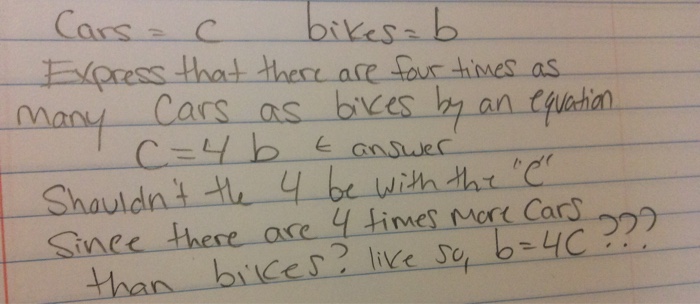 Cars = c bikes = b
Express that there are four times as
many Cars as bikes by an equation
C = 4 b ← answer
Shouldn't the 4 be with the "C"
Since there are 4 times more Cars
than bikes? like so, b=4C???